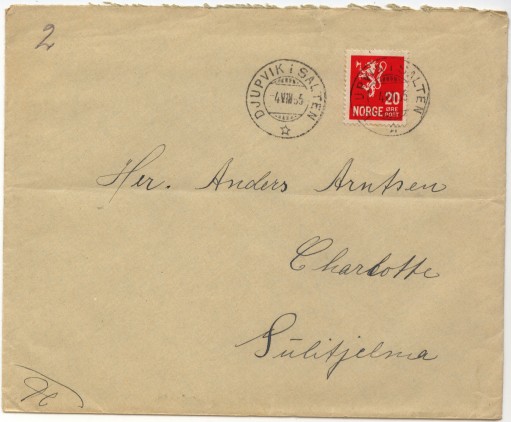 2
DJUPVIK i SALTEN
4 VIII 35
20
NORGE ØRE
POST
Hr. Anders Arntsen
Charlotte
Sulitjelma